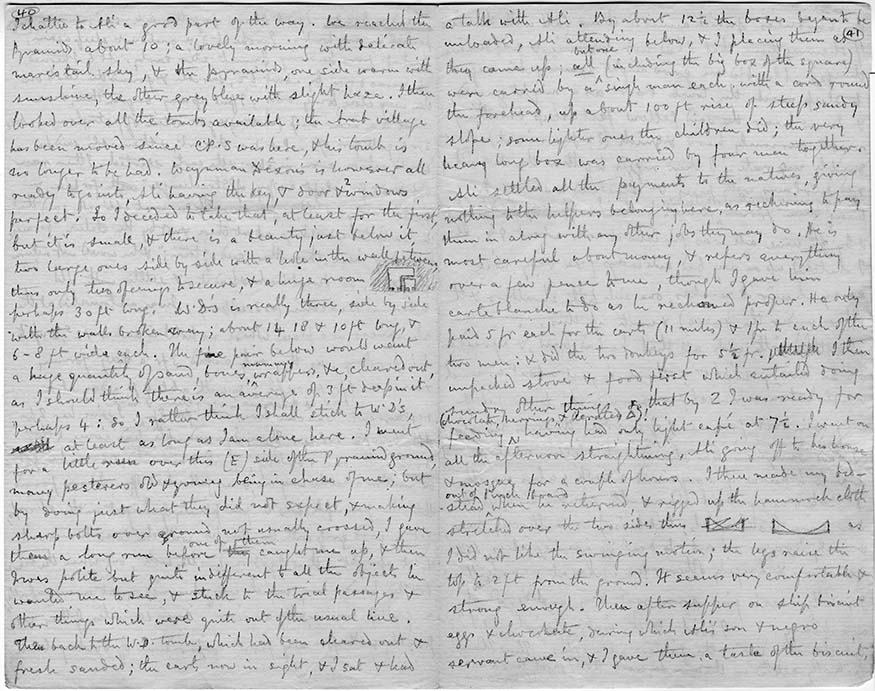 40
I chatted to Ali a good part of the way. We reached the
Pyramid about 10; a lovely morning with delicate
mare's tail sky, & the pyramid, one side warm with
sunshine, the other grey blue with slight haze. I then
looked over all the tombs available; the Arab village
has been moved since C.P.S was here, & his tomb is
no longer to be had. Waynman Dixon's is however all
ready to go into, Ali having the key, & door & 2 windows
perfect. So I decided to take that, at least for the first,
but it is small, & there is a beauty just below it
two large ones side by side with a hole in the wall between
thus only two openings to secure, & a huge room
perhaps 30 ft long. W.D's is really three, side by side
with the walls broken away; about 14 18 & 10 ft long, &
6-8 ft wide each. The fine pair below would want
a huge quantity of sand, bones, mummy wrappers, &c, cleared out,
as I should think there is an average of 3 ft deep in it
perhaps 4: so I rather think I shall stick to W.D's,
at least as long as I am alone here. I went
for a little over this (E) side of the Pyramid ground,
many pesterers old & young being in chase of me; but
by doing just what they did not expect, & making
sharp bolts over ground not usually crossed, I gave
them a long run before one of them caught me up, & then
I was polite but quite indifferent to all the objects he
wanted me to see, & stuck to the trial passages &
other things which were quite out of the usual line.
Then back to the W.D. tombs, which had been cleared out &
fresh sanded; the carts now in sight, & I sat & had
41
a talk with Ali. By about 12½ the boxes began to be
unloaded, Ali attending below, & I placing them as
they came up; all but one (including the big box of the square)
were carried by a single man each, with a cord round
the forehead, up about 100 ft rise of steep sandy
slope; some lighter ones the children did; the very
heavy long box was carried by four men together.
Ali settled all the payments to the natives, giving
nothing to the helpers belonging here, as reckoning to pay
them in along with any other jobs they may do. He is
most careful about money & refers everything
over a few pence to me, though I gave him
carte blanche to do as he reckoned proper. He only
paid 5 fr each for the carts (11 miles) & 1 fr to each of the
two men: & did the two donkeys for 5½ fr. I then
unpacked stove & food first which entailed doing
sundry other things, that by 2 I was ready for
feeding (chocolate, herrings & having had only light café at 7½. I went on
all the afternoon straightening, Ali going off to his house
& mosque for a couple of hours. I then made my bed-
stead out of rough board when he returned, & rigged up the hammock cloth
stretched over the two sides thus as
I did not like the swinging motion; the legs raise the
top to 2 ft from the ground. It seems very comfortable &
strong enough. Then after supper on ship biscuit
eggs & chocolate, during which Ali's son & negro
servant came in, & I gave them a taste of the biscuit,